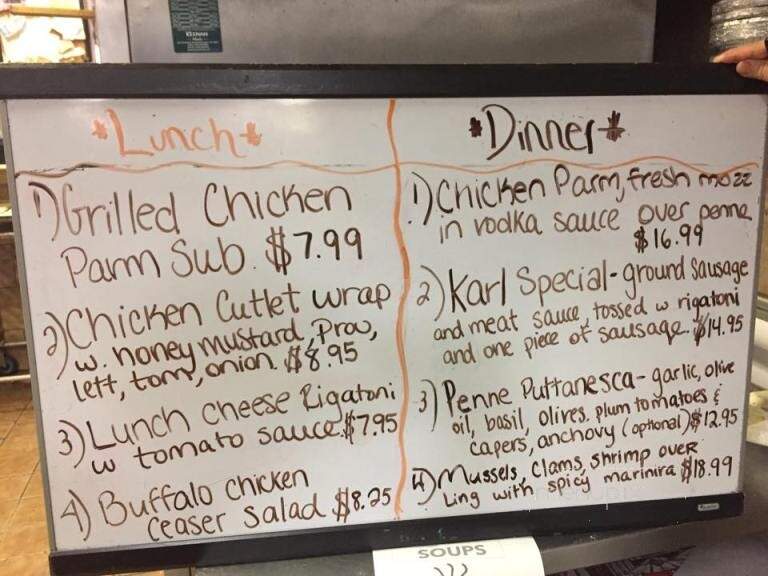 *Lunch*
1) Grilled Chicken
Parm Sub. $7.99
2) Chicken Cutlet wrap
w. honey mustard, Prov,
lett, tom, onion. $8.95
3) Lunch cheese Rigatoni
w tomato sauce. $7.95
4) Buffalo chicken
Ceaser Salad $8.25
*Dinner*
1) Chicken Parm, fresh mozz
in vodka sauce over penne
$16.99
2) Karl Special - ground Sausage
and meat sauce, tossed w rigatoni
and one piece of sausage. $14.95
3) Penne Puttanesca - garlic, olive
oil, basil, olives, plum tomatoes &
capers, anchovy (optional) $12.95
4) Mussels, Clams, Shrimp over
Ling with spicy marinira $18.99
SOUPS